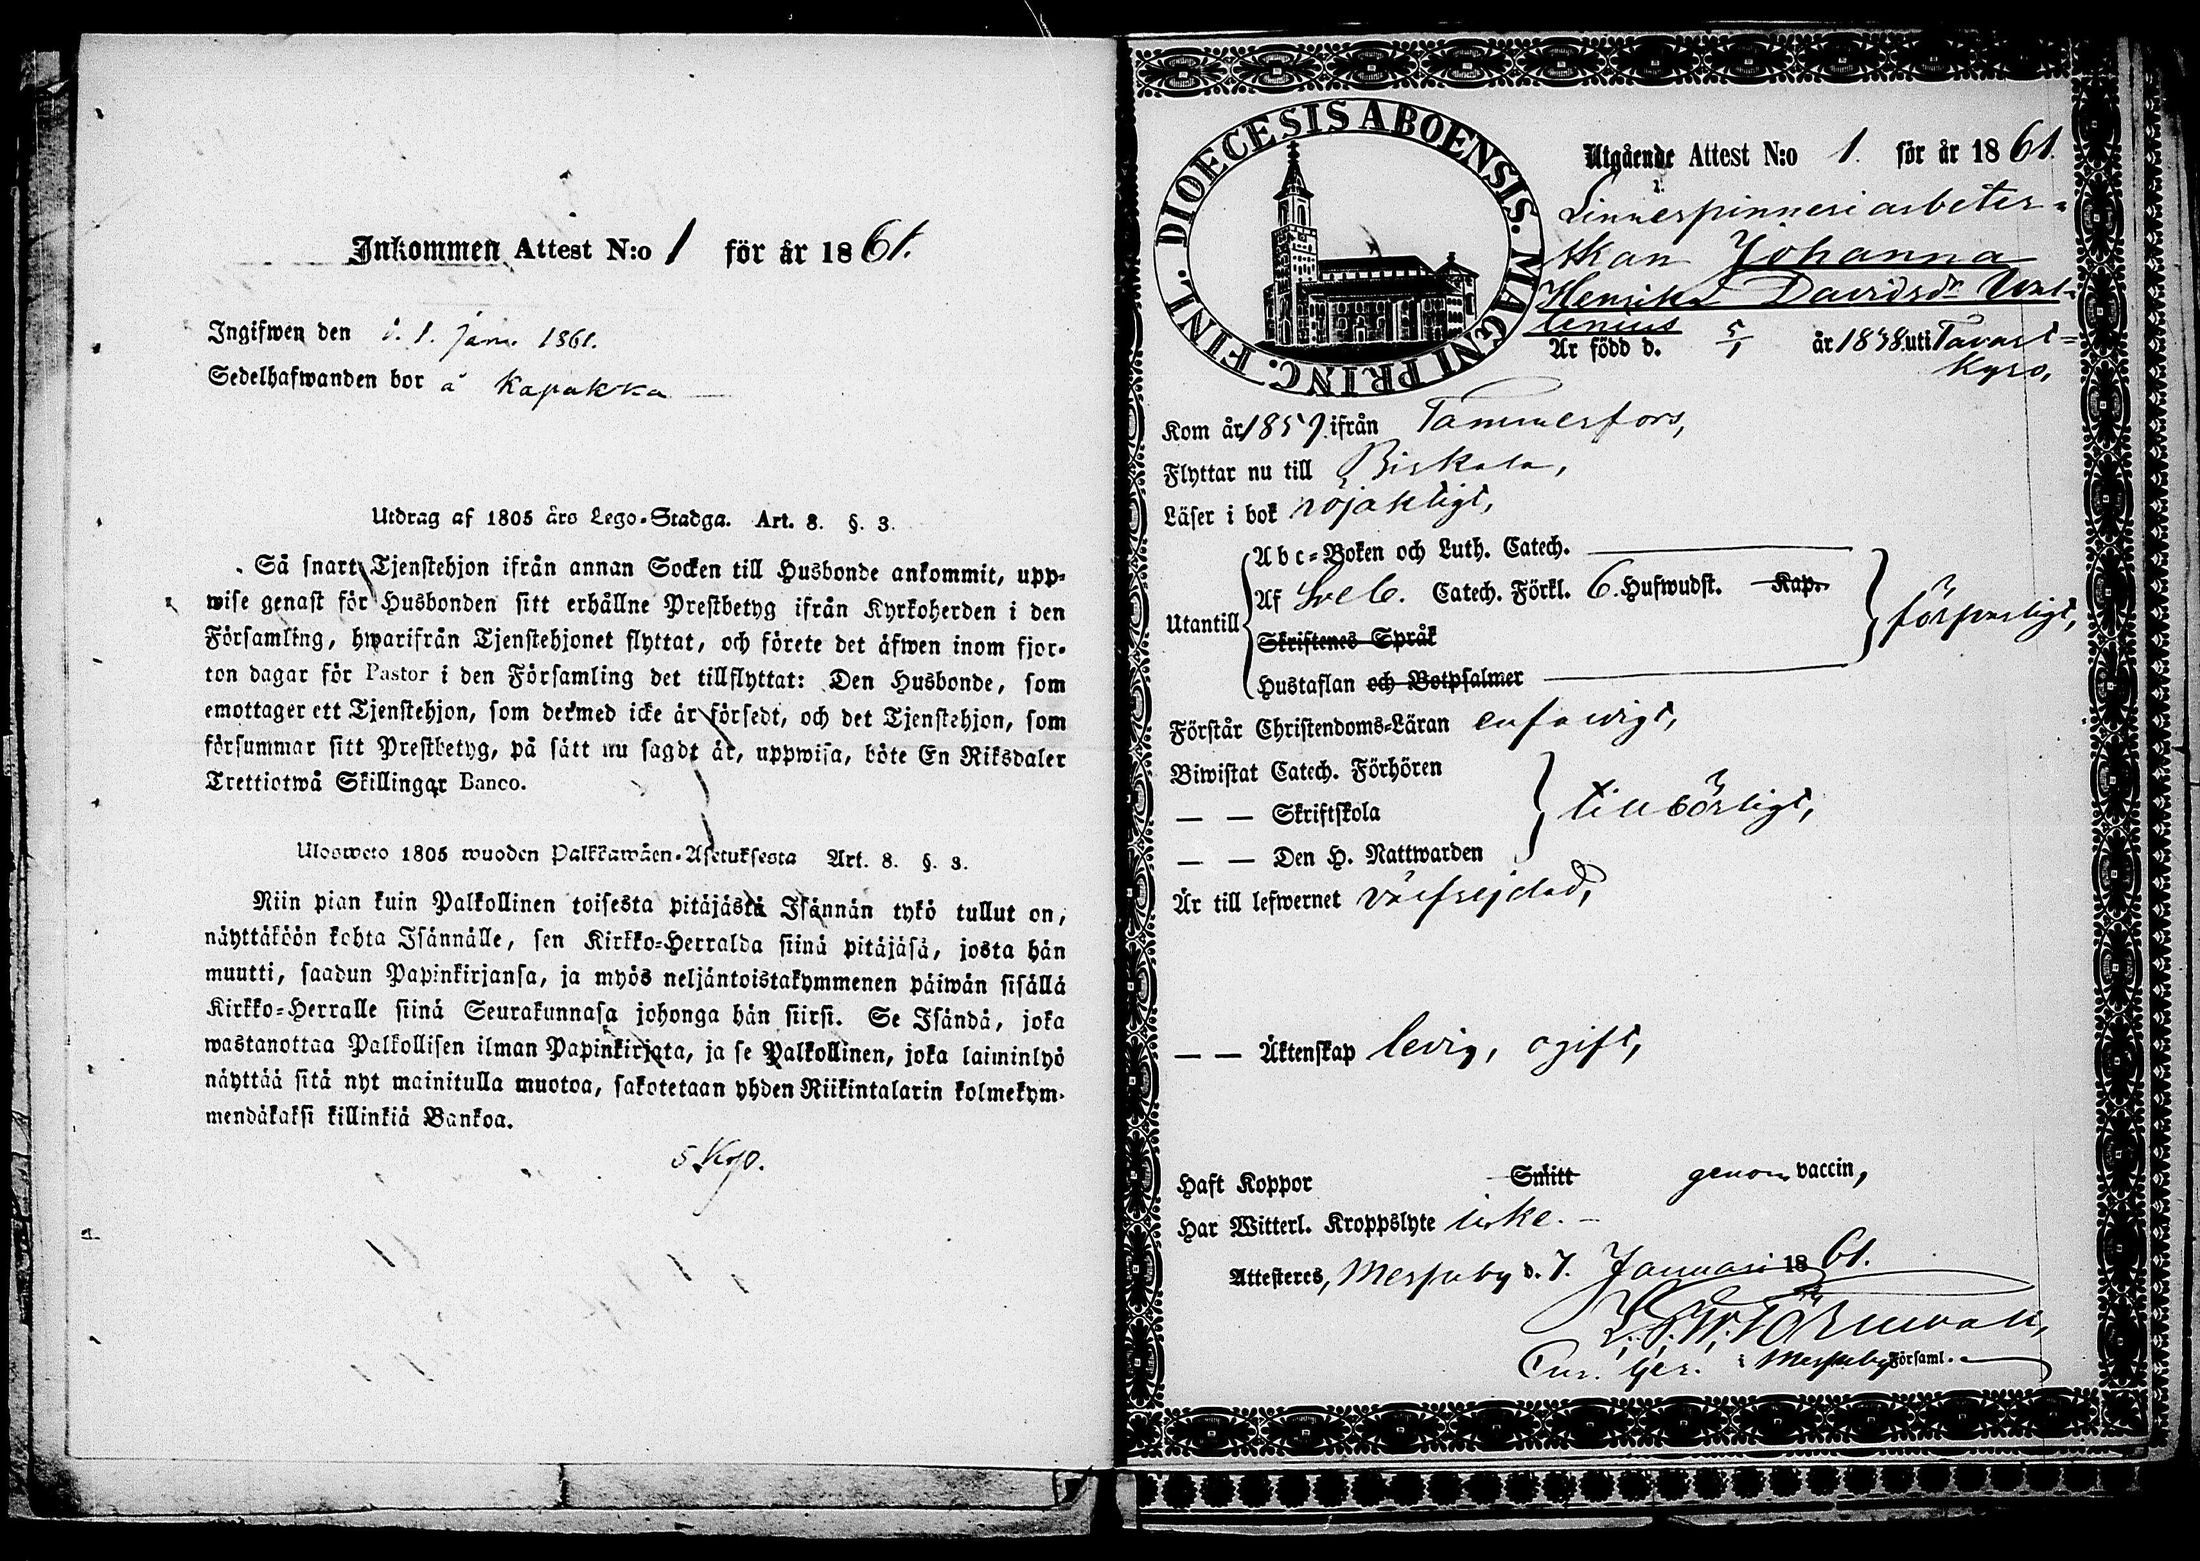 Inkommen Attest N:o 1 för år 1861.
Ingifwen den d. 1. Jan. 1861.
Sedelhafwanden bor å Kapakka
Utdrag af 1805 års Lego-Stadga. Art. 8. §. 3.
Så snart Tjenstehjon ifrån annan Socken till Husbonde ankommit, upp-
wise genast för Husbonden sitt erhållne Prestbetyg ifrån Kyrkoherden i den
Församling, hwarifrån Tjenstehjonet flyttat, och förete det äfwen inom fjor-
ton dagar för Pastor i den Församling det tillflyttat: Den Husbonde, som
emottager ett Tjenstehjon, som dermed icke är försedt, och det Tjenstehjon, som
försummar sitt Prestbetyg, på sätt nu sagdt är, uppwisa, böte En Riksdaler
Trettiotwå Skillingar Banco.
Ulosweto 1805 wuoden Palkkawäen-Asetuksesta Art. 8. §. 3.
Niin pian kuin Palkollinen toisesta pitäjästä Isännän tykö tullut on,
näyttäköön kohta Isännälle, sen Kirkko-Herralda siinä pitäjäsä, josta hän
muutti, saadun Papinkirjansa, ja myös neljäntoistakymmenen päiwän sisällä
Kirkko-Herralle siinä Seurakunnasa johonga hän siirsi. Se Isändä, joka
wastanottaa Palkollisen ilman Papinkirjata, ja se Palkollinen, joka laiminlyö
näyttää sitä nyt mainitulla muotoa, sakotetaan yhden Riikintalarin kolmekym-
mendäkaksi killinkiä Bankoa.
5 Kop.
DIOECESIS ABOENSIS. MAGNI PRINC. FINL.
Utgående Attest N:o 1. för år 1861.
Linnespinneriarbeter-
skan Johanna
Henrika Davidsdr
Är född d. 5/1 år 1838 uti Tavast-
kyro,
Kom år 1857 ifrån Tammerfors,
Flyttar nu till Birkala,
Läser i bok nöjaktigt,
Abc-Boken och Luth. Catech.
Utantill Af Sveb. Catech. Förkl. 6. Hufwudst. Kap. försvarligt,
Skriftenes Språk
Hustaflan och Botpsalmer
Förstår Christendoms-Läran enfaldigt,
Biwistat Catech. Förhören
— — Skriftskola tillbörligt,
— — Den H. Nattwarden
Är till lefwernet välfrejdad,
— — Äktenskap ledig, ogift,
Haft Koppor Smitt genom vaccin,
Har Witterl. Kroppslyte icke. –
Attesteres, Messuby d. 7. Januari 1861.
Törnwall,
i Messuby Församl.